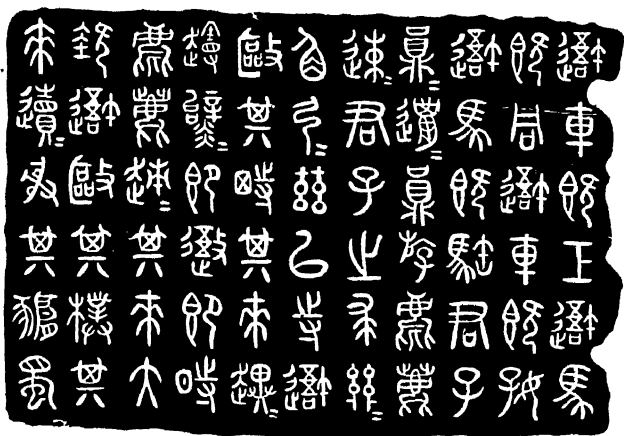 𨖍車既工𨖍馬
既同𨖍車既好
𨖍馬既駓君子
員=邋=員斿麀鹿
速=君子之求
角弓=茲以寺𨖍
敺其特其來趩=
即即時
麀鹿趚=其來大
𨖍敺其樸其
來遺=射其豜蜀